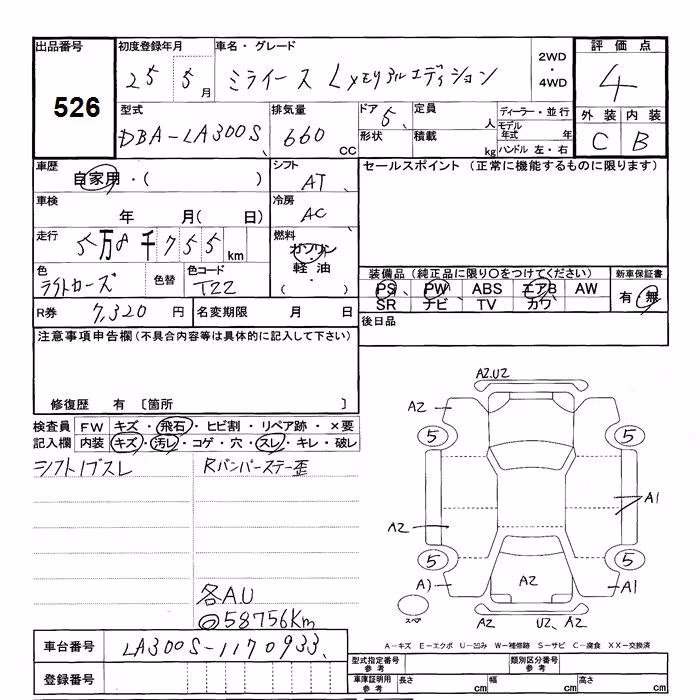 出品番号 初度登録年月 車名・グレード 2WD・4WD 評価点
526 25 5月 ミライース Lメモリアルエディション 4
型式 排気量 ドア 定員 ディーラー・並行 外装 内装
DBA-LA300S 660cc 5 人 モデル年式 年 C B
形状 積載 kg ハンドル 左・右
車歴 シフト セールスポイント (正常に機能するものに限ります)
自家用・( ) AT
車検 冷房
年 月( 日) AC
走行 燃料
5万8千755km ガソリン
軽油・( )
色 色替 色コード 装備品 (純正品に限り〇をつけてください) 新車保証書
ライトローズ T22 PS PW ABS エアB AW 有・無
SR ナビ TV カワ
R券 7,320円 名変期限 月 日 後日品
注意事項申告欄 (不具合内容等は具体的に記入して下さい)
修復歴 有 〔箇所 〕
検査員 FW キズ・飛石・ヒビ割・リペア跡・×要
記入欄 内装 キズ・汚レ・コゲ・穴・スレ・キレ・破レ
シフトノブスレ Rバンパーステー歪
各A.U
58756Km
A2.U2
A2
5 5
A1
A2
5 5
A1 A2 A1
スペア U2、A2
A-キズ E-エクボ U-凹み W-補修跡 S-サビ C-腐食 XX-交換済
車台番号 LA300S-1170933
型式指定番号 参考 類別区分番号 参考
登録番号
車庫証明用 参考 長さ cm 幅 cm 高さ cm